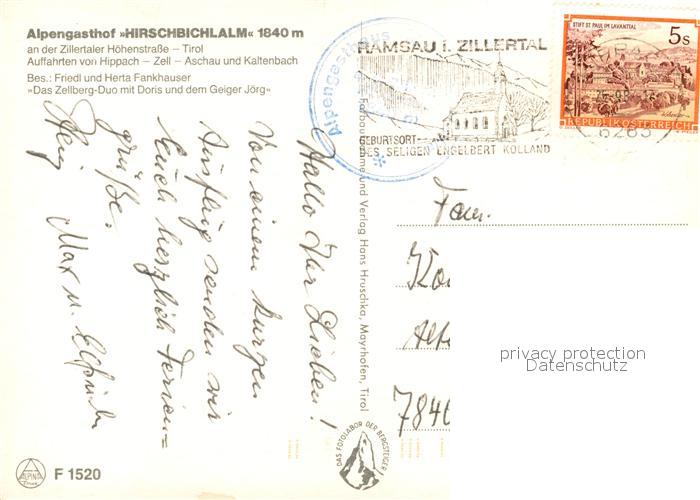 Alpengasthof »HIRSCHBICHLALM« 1840 m
an der Zillertaler Höhenstraße – Tirol
Auffahrten von Hippach – Zell – Aschau und Kaltenbach
Bes.: Friedl und Herta Fankhauser
»Das Zellberg-Duo mit Doris und dem Geiger Jörg«
Hallo Ihr Lieben!
Von einem kurzen
Ausflug senden wir
Euch herzlich Ferien=
grüße.
Max u.
F 1520
ALPINA
Alpengasthaus
RAMSAU i. ZILLERTAL
GEBURTSORT
DES SELIGEN ENGELBERT KOLLAND
STIFT ST. PAUL IM LAVANTTAL
5 s
REPUBLIK ÖSTERREICH
6263
Farbaufnahme und Verlag Hans Hruschka, Mayrhofen, Tirol
DAS FOTOLABOR DER BERGSTEIGER
Fam.
784
privacy protection
Datenschutz